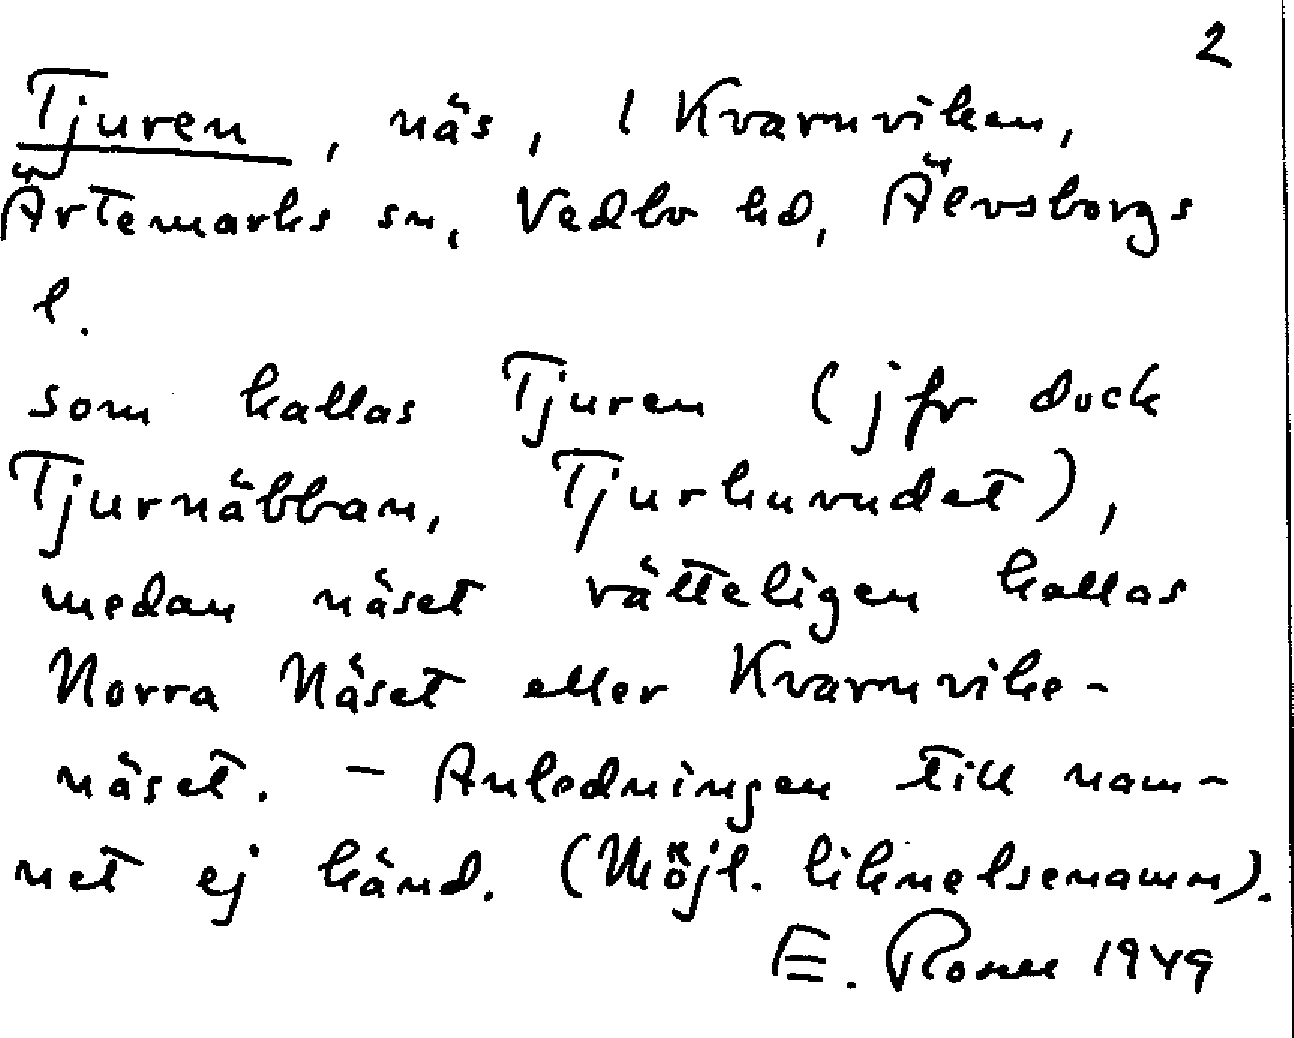 2
Tjuren, näs, i Kvarnviken,
Ärtemarks sn, Vedbo hd, Älvsborgs
l.
som kallas Tjuren (jfr dock
Tjurnäbban, Tjurhuvudet),
medan näset rätteligen kallas
Norra Näset eller Kvarnvike-
näset. - Anledningen till nam-
net ej känd. (Möjl. liknelsenamn).
E. 1949